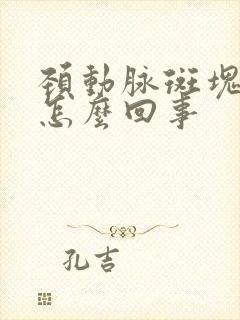 頚動脉斑塊
怎麽回事
孔吉